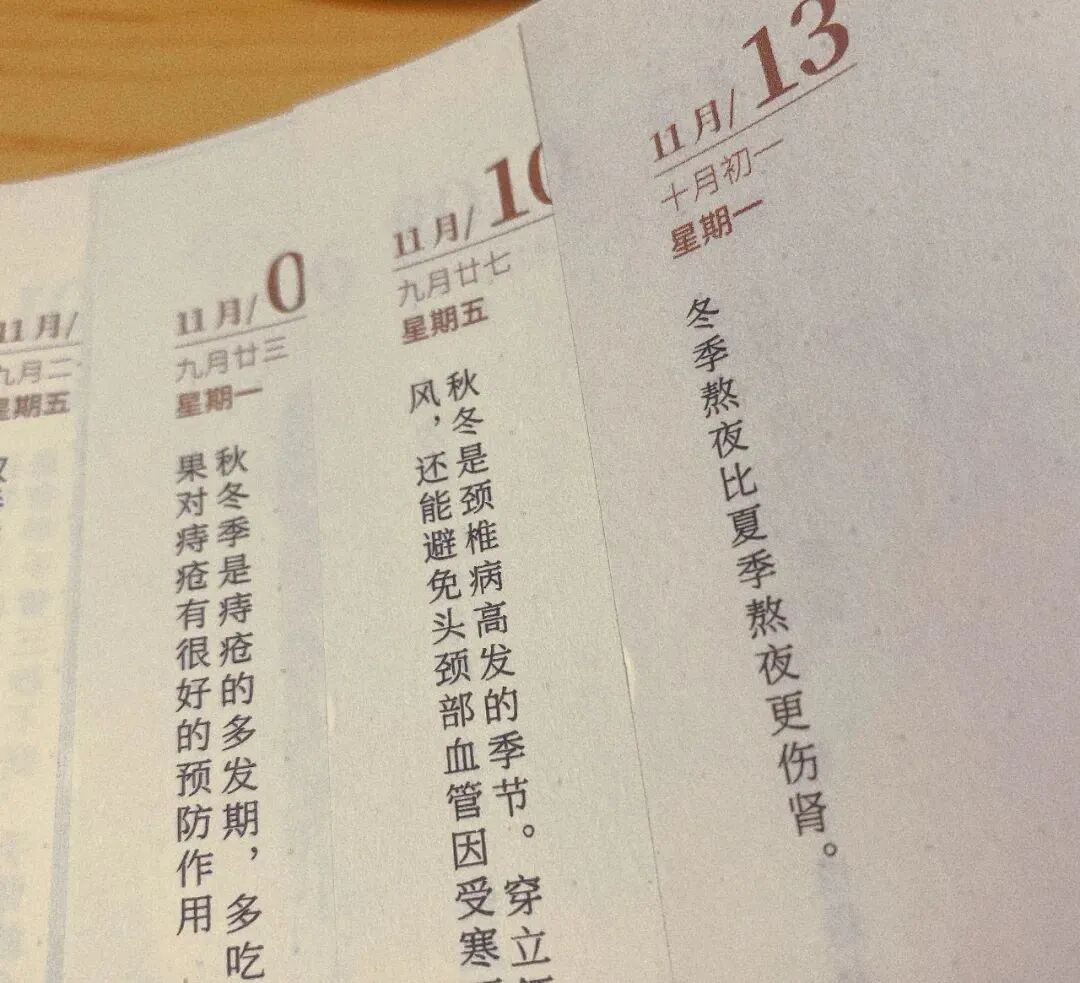 11月/13
十月初一
星期一
冬季熬夜比夏季熬夜更伤肾。
11月/10
九月廿七
星期五
秋冬是颈椎病高发的季节。穿立
风，还能避免头颈部血管因受寒
11月/0
九月廿三
星期一
秋冬季是痔疮的多发期，多吃
果对痔疮有很好的预防作用
11月/
九月二
星期五